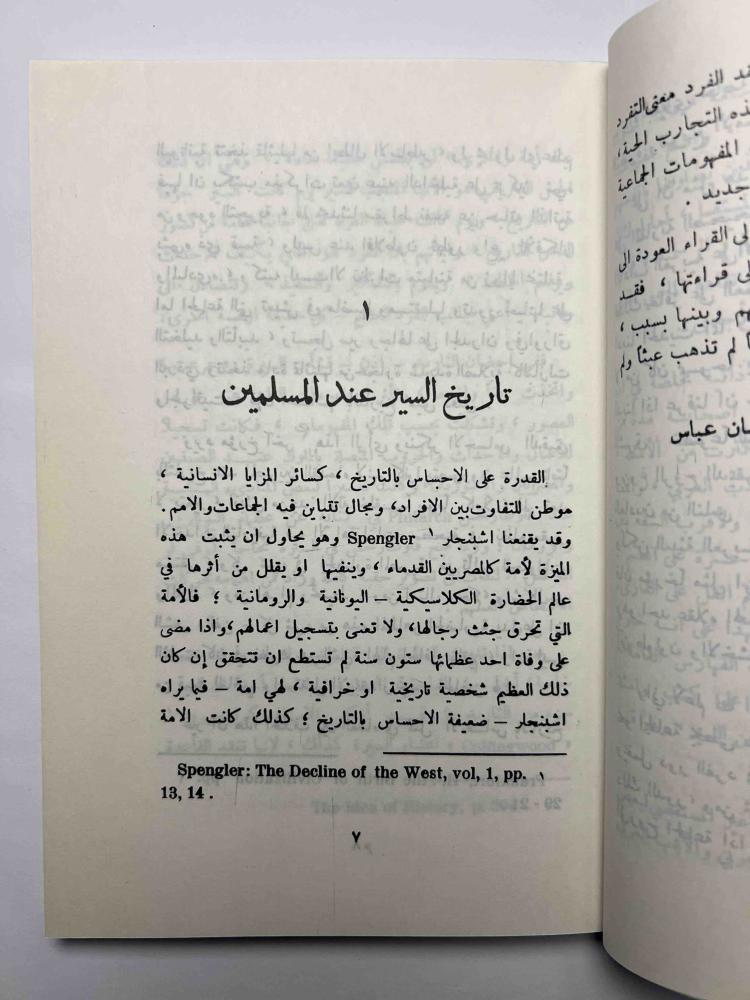 قد الفرد معنى التفرد
ذه التجارب الحية،
المفهومات الجماعية
جديد .
لى القراء العودة الى
لى قراءتها ، فقد
هم وبينها بسبب ،
لم تذهب عبثاً ولم
ان عباس
١
تاريخ السير عند المسلمين
القدرة على الاحساس بالتاريخ ، كسائر المزايا الانسانية ،
موطن للتفاوت بين الافراد، ومجال تتباين فيه الجماعات والامم .
وقد يقنعنا اشبنجلر Spengler ١ وهو يحاول ان يثبت هذه
الميزة لأمة كالمصريين القدماء ، وينفيها او يقلل من أثرها في
عالم الحضارة الكلاسيكية – اليونانية والرومانية ؛ فالأمة
التي تحرق جثث رجالها، ولا تعنى بتسجيل اعمالهم، واذا مضى
على وفاة احد عظمائها ستون سنة لم تستطع ان تتحقق إن كان
ذلك العظيم شخصية تاريخية او خرافية ، لهي امة – فيما يراه
اشبنجلر – ضعيفة الاحساس بالتاريخ ؛ كذلك كانت الامة
١ Spengler: The Decline of the West, vol, 1, pp.
13, 14 .
٧